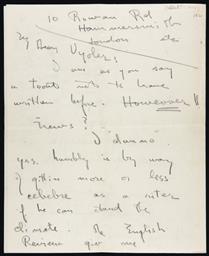 10 Rowan Rd.
Hammersmith
London
My Dear Vyder,
I am as you say
a to have
written before. However!!
"News?
I dunno.
yes. humbly is by way
of gittin more or less
celebre as a riter
if he can stand the
climate. The English
Review give me